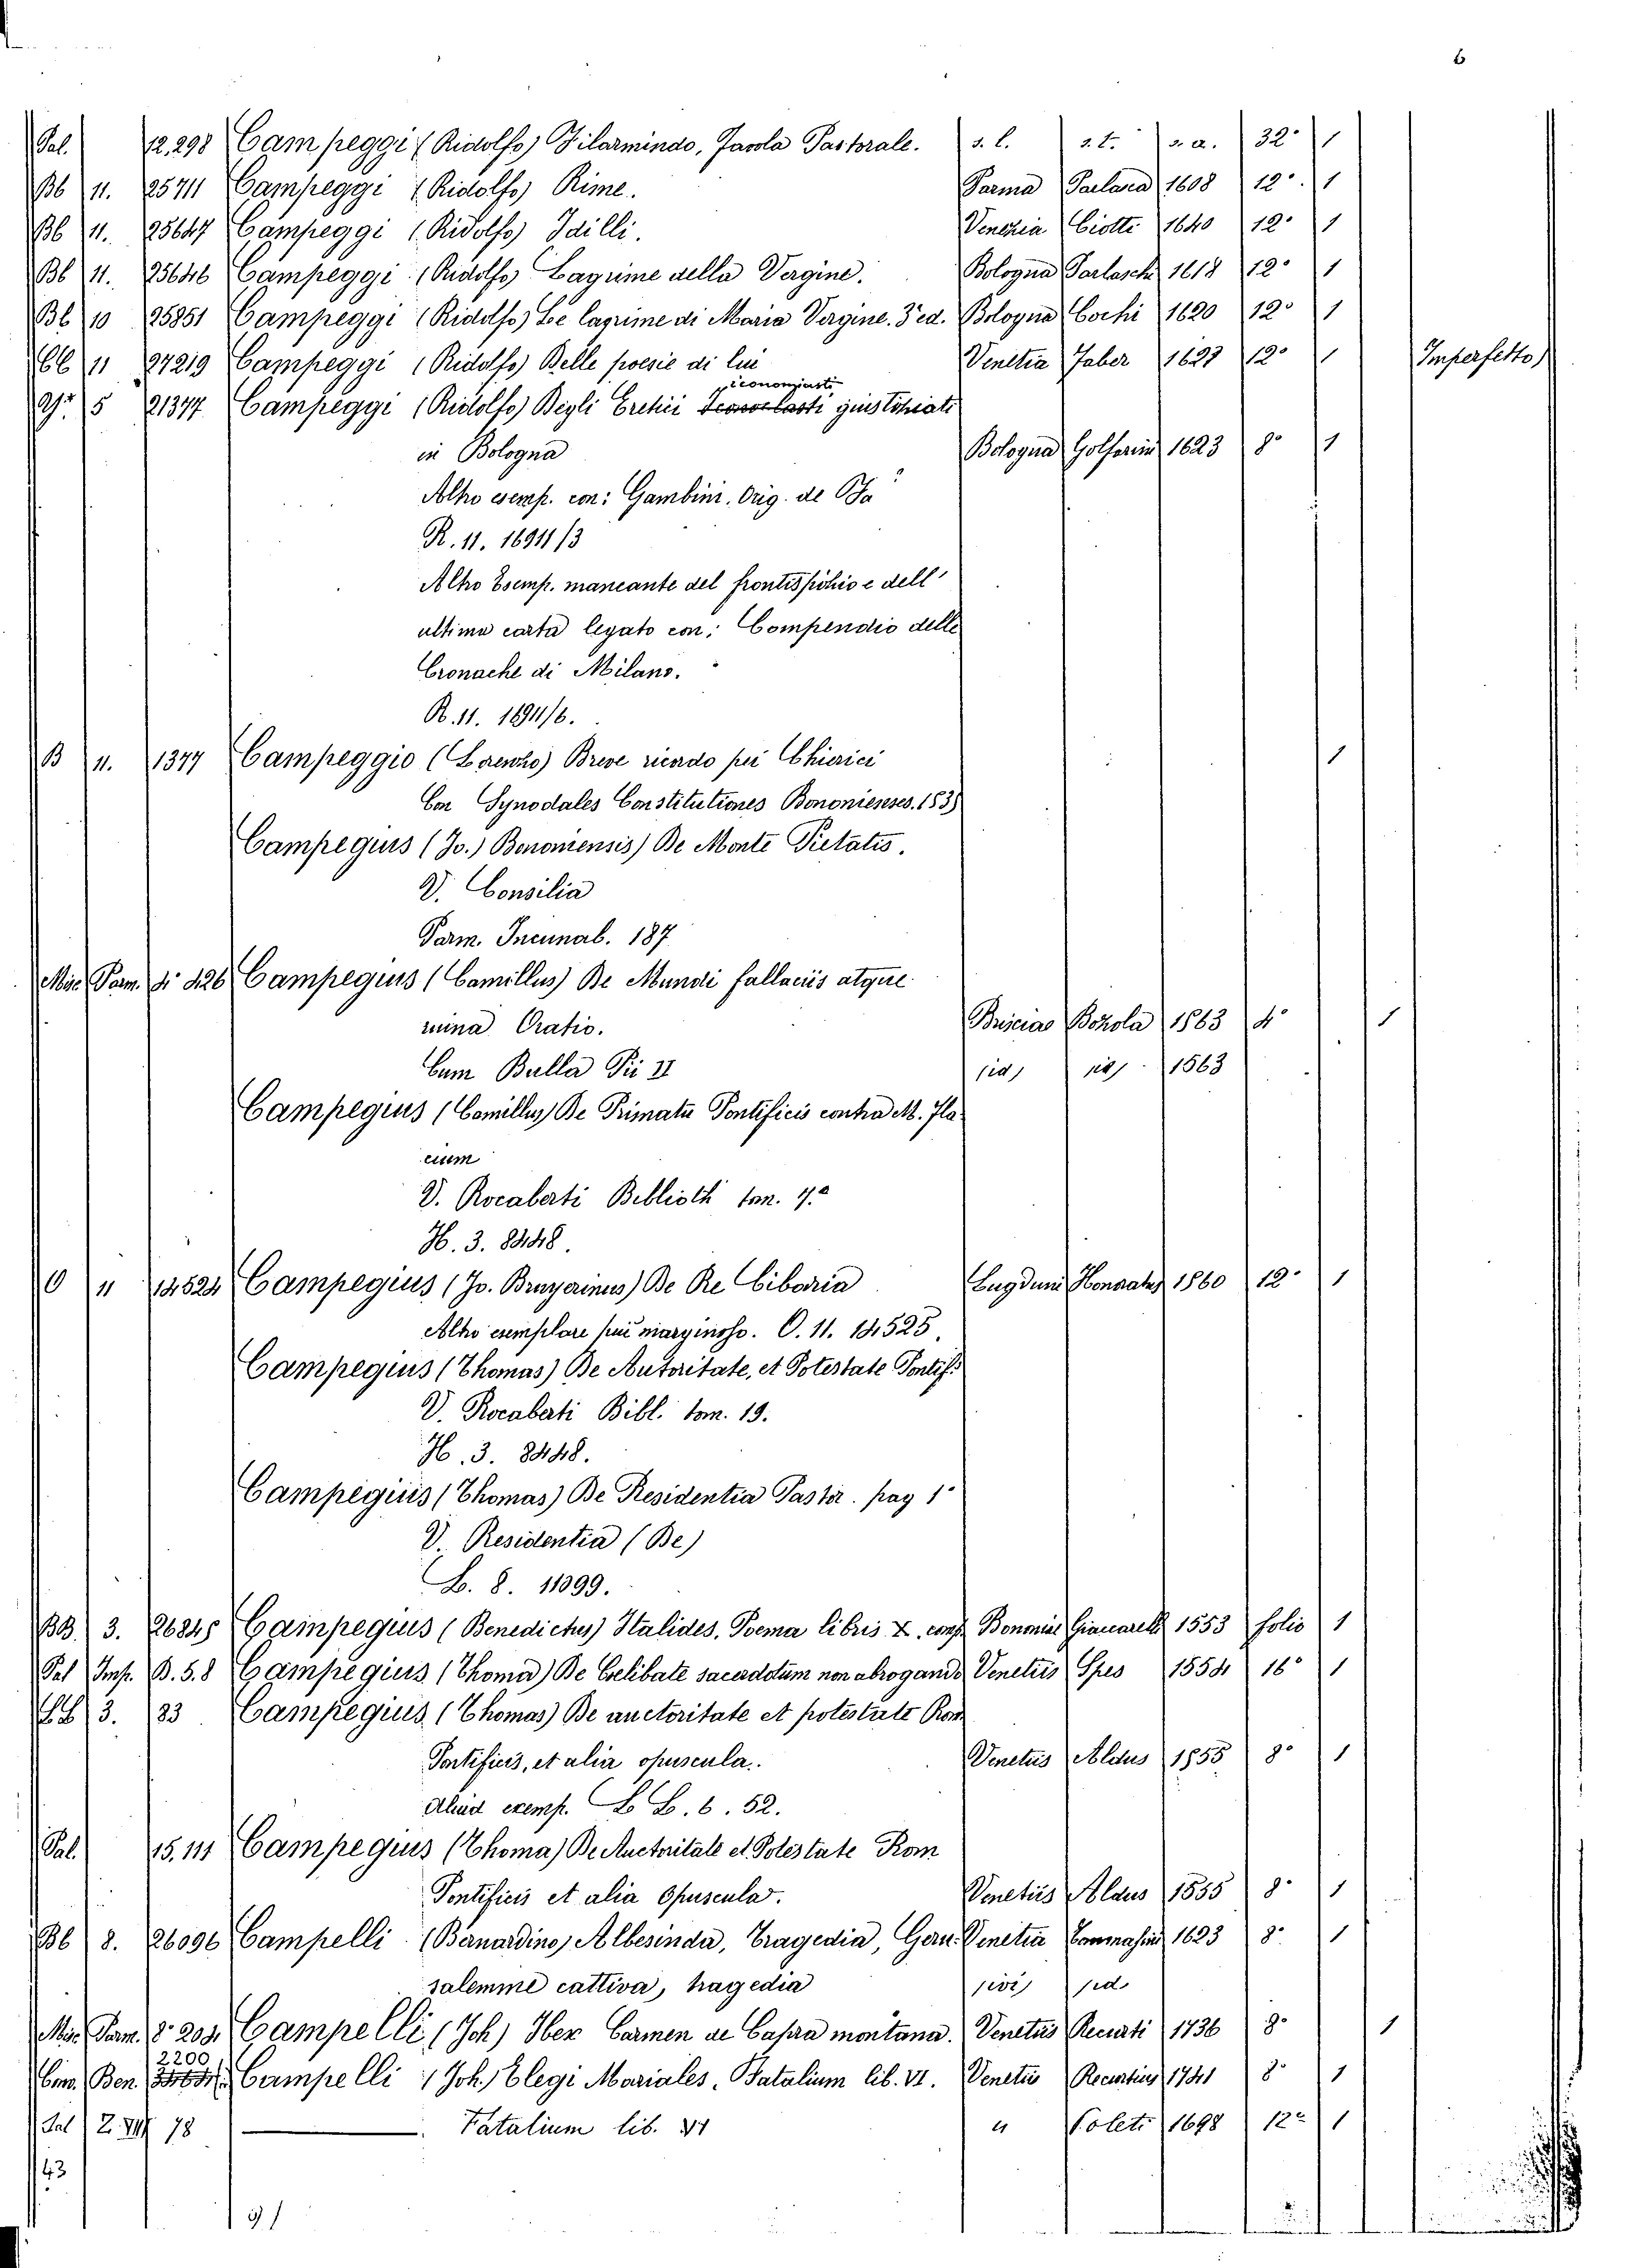 6
Pal. 12.298 Campeggi (Ridolfo) Filarmindo, Favola Pastorale. s. l. s. t. s. a. 32° 1
Bb 11. 25711 Campeggi (Ridolfo) Rime. Parma 1608 12°. 1
Bb 11. 25647 Campeggi (Ridolfo) Idilli. Venezia Ciotti 1640 12° 1
Bb 11. 25646 Campeggi (Ridolfo) Lagrime della Vergine. Bologna Parlasch 1618 12° 1
Bb 10 25851 Campeggi (Ridolfo) Le lagrime di Maria Vergine. 3ª ed. Bologna Cochi 1620 12° 1
Bb 11 27219 Campeggi (Ridolfo) Delle poesie di lui Venetia Faber 12° 1 Imperfetto)
iconomiasti
5 21377 Campeggi (Ridolfo) Degli Eretici Iconoclasti giustiziati
in Bologna Bologna Golfarini 1623 8° 1
Altro esemp. con: Gambini. Orig. de
R. 11. 16911/3
Altro Esemp. mancante del frontispizio e dell'
ultima carta legato con: Compendio delle
Cronache di Milano.
R. 11. 16911/6.
B 11. 1377 Campeggio (Lorenzo) Breve ricordo pei Chierici 1
Con Synodales Constitutiones Bononienses.
Campegius (Jo.) Bononiensis) De Monte Pietatis.
V. Consilia
Parm. Incunab. 187
Misc. Parm. 4° 426 Campegius (Camillus) De Mundi fallaciis atque
ruina Oratio. Brixiae Bozola 1563 4° 1
Cum Bulla Pii II (id) (id) 1563
Campegius (Camillus) De Primatu Pontificis contra M. Fla
cium
V. Rocaberti Biblioth tom. 7.°
H. 3. 8448.
O 11 14524 Campegius (Jo. Bruyerinus) De Re Cibaria Lugduni Honoratus 1560 12° 1
Altro esemplare più marginoso. O. 11. 14525
Campegius (Thomas) De Autoritate, et Potestate Pontif.
V. Rocaberti Bibl. tom. 19.
H. 3. 8448.
Campegius (Thomas) De Residentia Pastor. pag 1°
V. Residentia (De)
L. 8. 11399.
BB. 3. 26245 Campegius (Benedictus) Italides, Poema libris X. conf. Bononiae Giaccarell 1553 folio 1
Pal Imp. B. 5.8 Campegius (Thoma) De Coelibatu sacerdotum non abrogando Venetiis Spes 1554 16° 1
LL 3. 23 Campegius (Thomas) De auctoritate et potestate Rom
Pontificis, et alia opuscula. Venetiis Aldus 1555 8° 1
Aliud exemp. L L. 6. 52.
Pal. 15.111 Campegius (Thoma) De Auctoritate et Potestate Rom
Pontificis et alia Opuscula. Venetiis Aldus 1555 8° 1
Bb 8. 26096 Campelli (Bernardino) Albesinda, Tragedia, Geru Venetia Tommasini 1623 8° 1
salemme cattiva, tragedia (ivi) (id
Misc. Parm. 8° 209. Campelli (Joh) Hex Carmen de Capra montana. Venetiis Recurti 1736 8° 1
2200
Ben. Campelli (Joh.) Elegi Mariales, Fatalium lib. VI. Venetiis Recurtius 1741 8° 1
Pal Z. VIII 78 ——— Fatalium lib. VI " Poleti 1698 12° 1
43
91